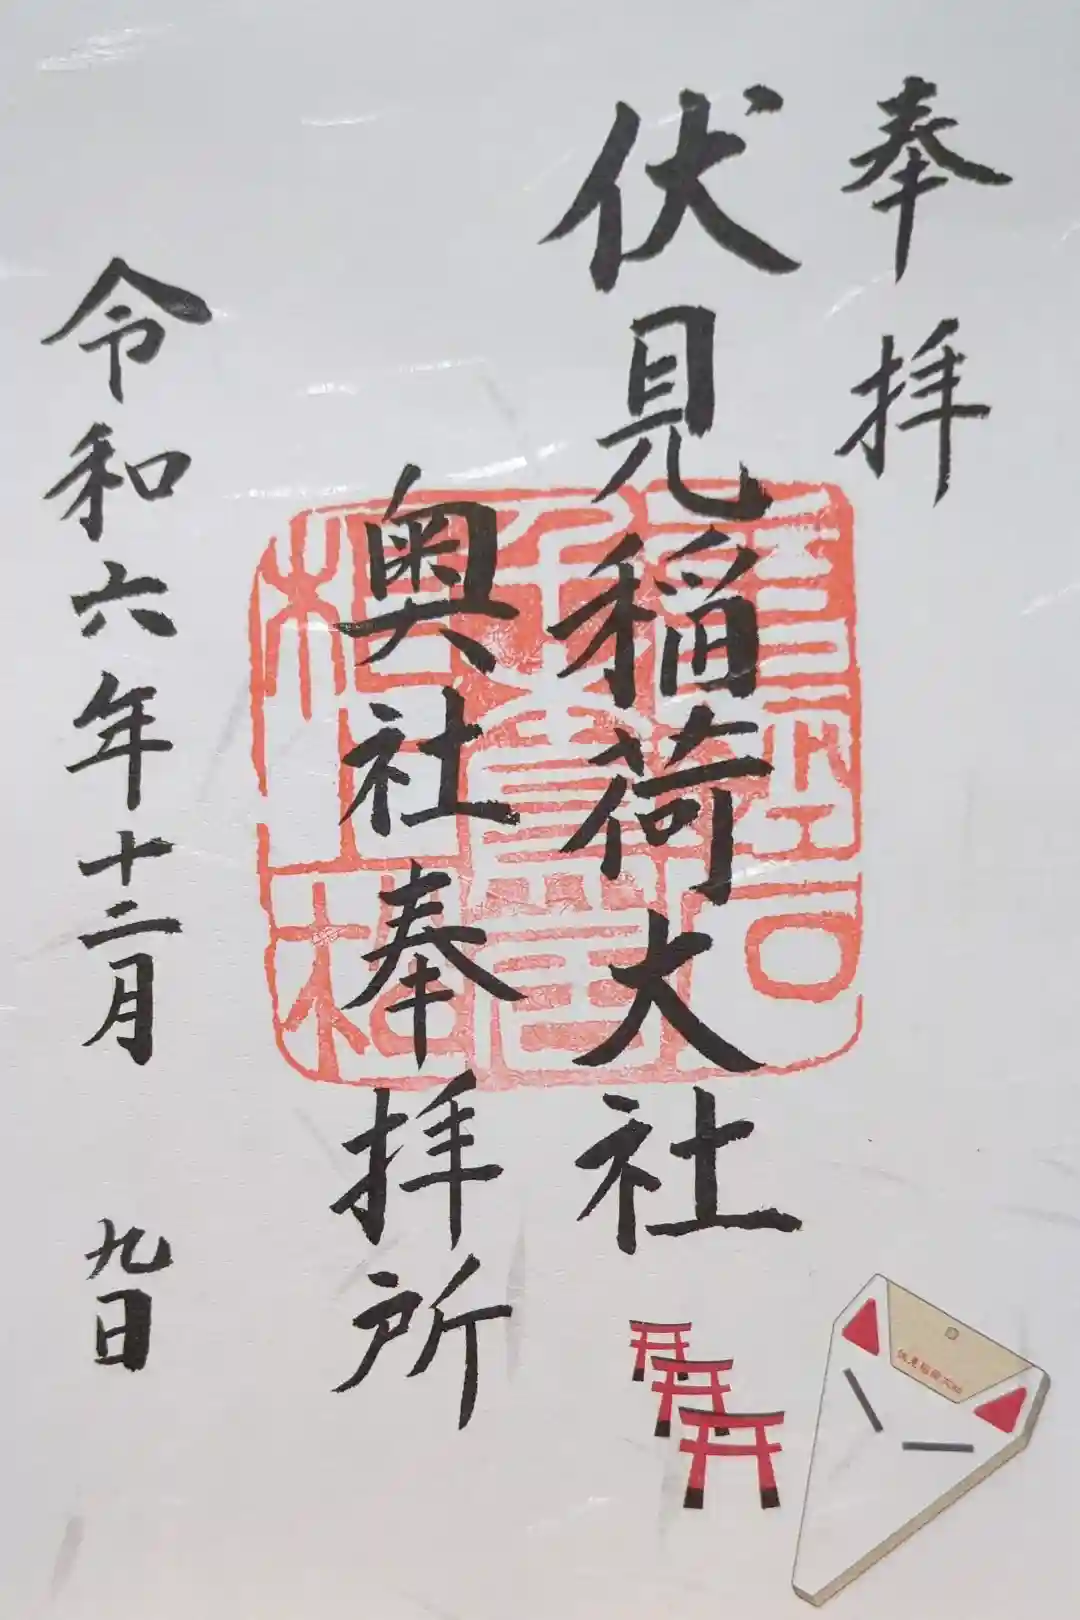 奉拝
伏見稲荷大社
奥社奉拝所
令和六年十二月九日
伏見稲荷大社